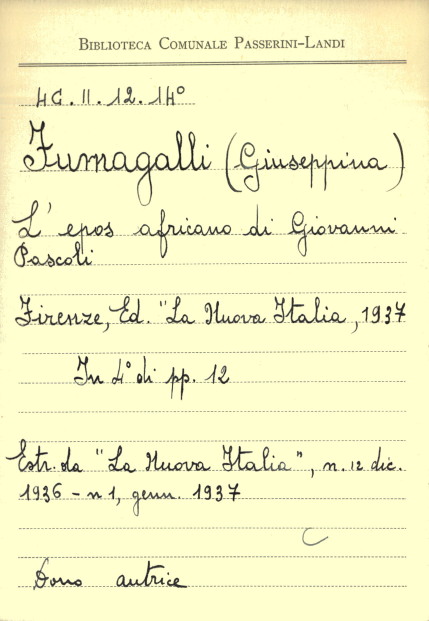 BIBLIOTECA COMUNALE PASSERINI-LANDI
4G.II.12.14°
Fumagalli (Giuseppina)
L'epos africano di Giovanni
Pascoli
Firenze, Ed. "La Nuova Italia, 1937
In 4° di pp. 12
Estr. da "La Nuova Italia", n. 12 dic.
1936 - n 1, genn. 1937
Dono autrice